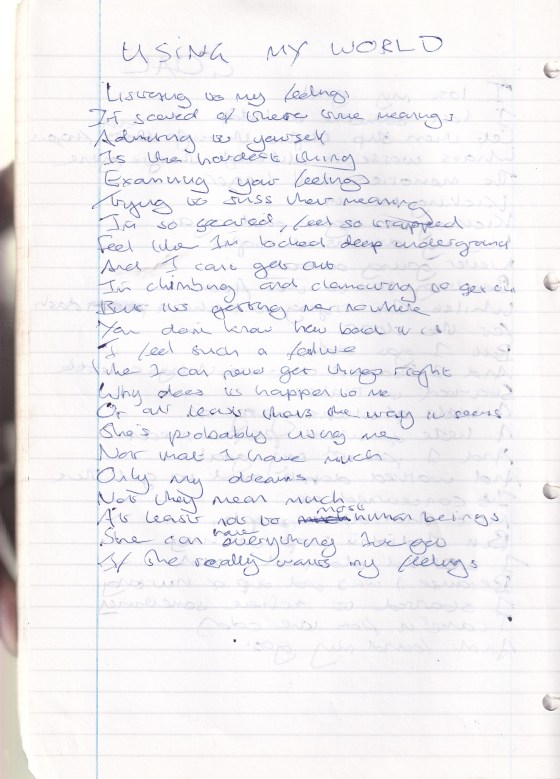 USING MY WORLD
Listening to my feelings
I'm scared of there true meanings
Admitting to yourself
Is the hardest thing
Examining your feelings
Trying to suss their meaning
I'm so scared, feel so trapped
Feel like I'm locked deep underground
And I can't get out
I'm climbing and clamouring to get out
But its getting me nowhere
You don't know how bad it is
I feel such a failure
like I can never get things right
Why does it happen to me
Or at least thats the way it seems
She's probably using me
Not that I have much
Only my dreams
Not they mean much
At least not to most human beings
She can have everything I've got
If she really wants my feelings